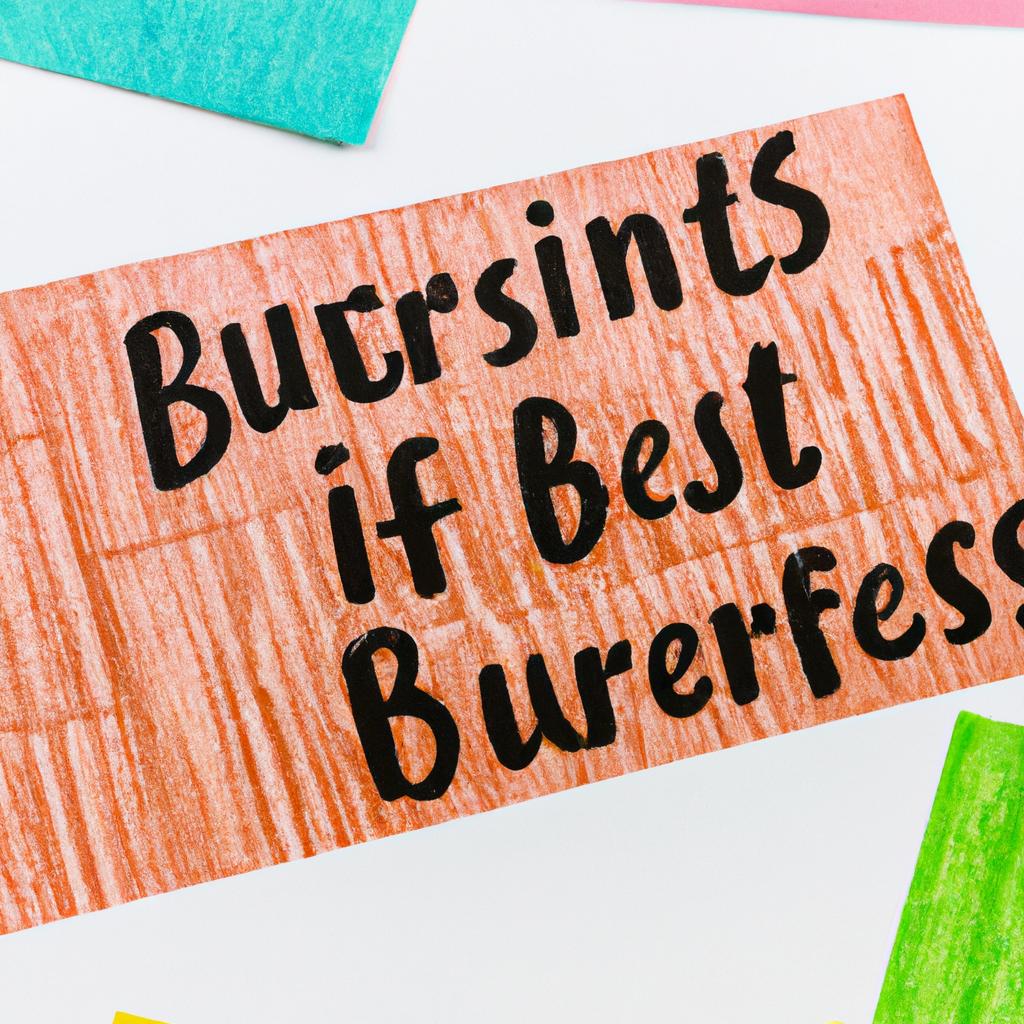 Butrsints
if Best
Burerfess